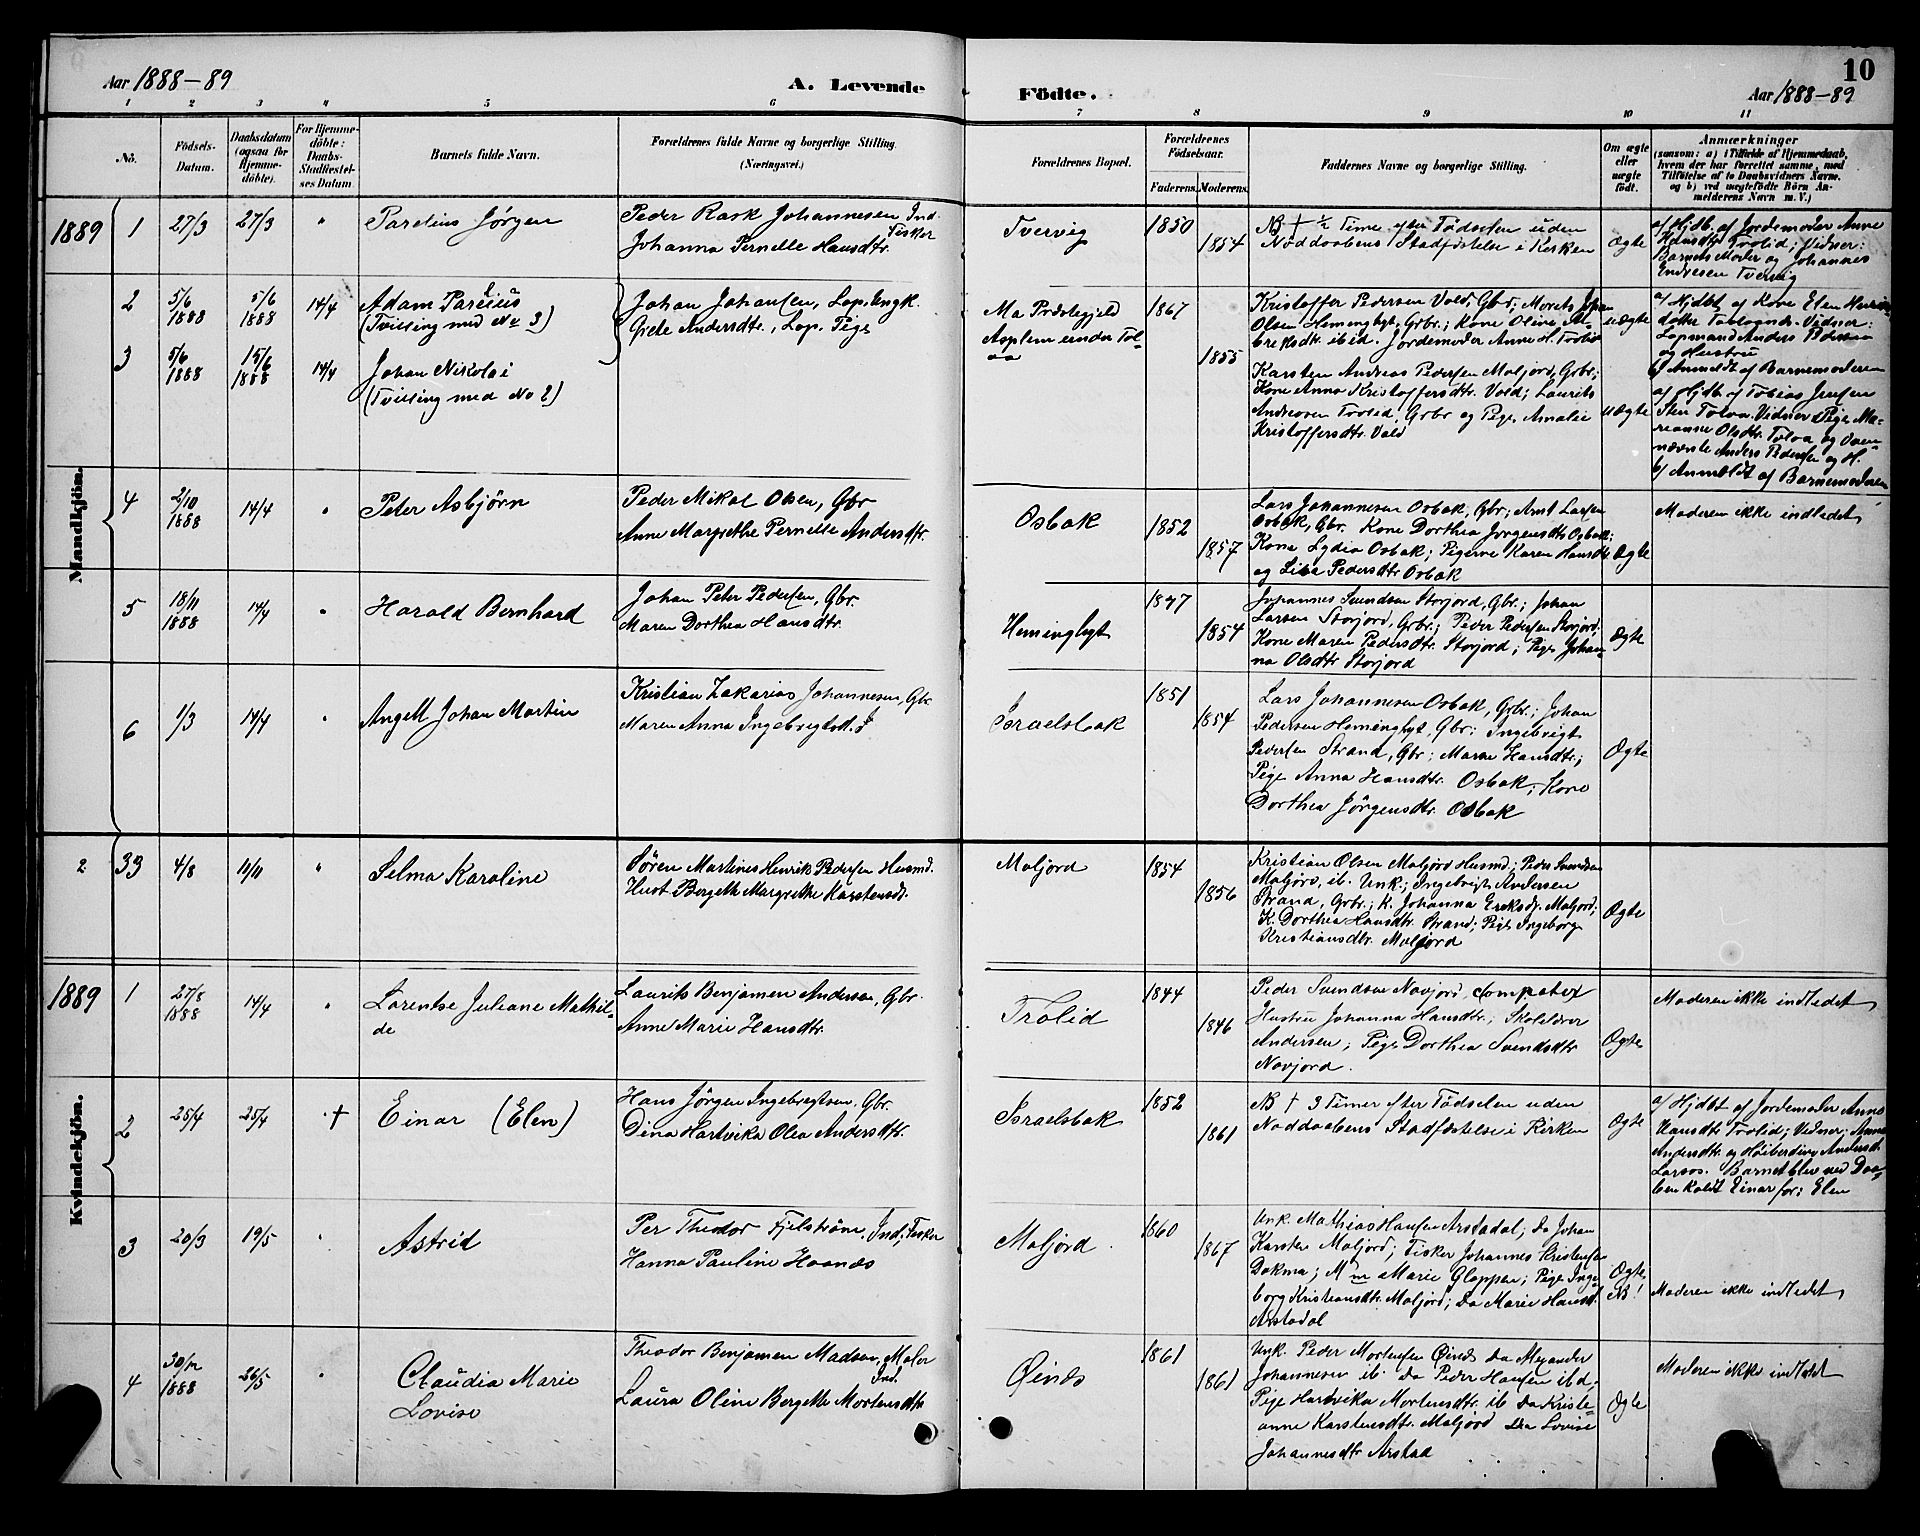 10
Aar 1888–89
A. Levende Födte.
Aar 1888–89
1 2 3 4 5 6 7 8 9 10 11
No.
Födsels-Datum.
Daabsdatum (ogsaa for Hjemme-döbte).
For Hjemme-döbte: Daabs-Stadfæstel-ses Datum
Barnets fulde Navn.
Forældrenes fulde Navne og borgerlige Stilling.
(Næringsvei.)
Forældrenes Bopæl.
Forældrenes Födselsaar.
Faderens. Moderens.
Faddernes Navne og borgerlige Stilling.
Om ægte eller uægte födt.
Anmærkninger
(saasom: a) i Tilfælde af Hjemmedaab,
hvem der har forrettet samme, med
Tilföielse af to Daabsvidners Navne.
og b) ved uægtefödte Börn An-
melderens Navn m. V.)
Mandkjön.
1889 1 27/3 27/3 " Parelius Jørgen
Peder Rask Johannesen Ind. Fisker
Johanna Pernelle Hansdtr.
Tvervig 1850 1854
NB † ½ Time efter Fødselen uden
Nøddaabens Stadfæstelse i Kirken
Ægte
a/ Hjdb. af Jordemoder Anne
Hansdtr Trolid; Vidner:
Barnets Moder og Johannes
Endresen Tvervig
2 5/6 1888 5/6 1888 14/4 Adam Parelius
(Tvilling med No 3)
Johan Johansen, Lap. Ungk.
Grele Andersdtr., Lap. Pige
Ma Præstegjeld
1867 1855
Kristoffer Pedersen Vold, Gbr;
Olsen Hemingbygt, Grbr.; Kone Oline
ibid. Jordemoder Anne H. Trolid
uægte
a/ Hjdbt af Kone Elen
Vidner:
Lapmand Anders Pedersen
og Hustru
b/ Anmeldt af Barnemoderen
3 5/6 1888 15/6 1888 14/4 Johan Nikolai
(Tvilling med No 2)
Karsten Andreas Pedersen Maljord, Grbr;
Kone Anna Kristoffersdtr. Vold; Laurits
Andreasen Trolid, Grbr og Pige Amalie
Kristoffersdtr. Vold
uægte
a/ Hjdb. af Tobias Jensen
Tolva. Vidner: Pige Ma-
rianne Olsdtr. Tolva og
nævnte Anders Pedersen og H.
b/ Anmeldt af Barnemoderen
4 2/10 1888 14/4 " Peter Asbjörn
Peder Mikal Olsen, Gbr
Anne Margrethe Pernelle Andersdtr.
Osbak 1852 1857
Lars Johannesen Osbak, Gbr; Arnt Larsen
Osbak, Gbr. Kone Dorthea Jørgensdtr Osbak;
Kone Lydia Osbak; Pigerne Karen Hansdtr
og Lisa Pedersdtr Osbak
Ægte
Moderen ikke indledet
5 18/11 1888 14/4 " Harald Bernhard
Johan Peter Pedersen, Gbr.
Maren Dorthea Hansdtr.
Hemingbygt 1847 1854
Johannes Svendsen Storjord, Gbr.; Johan
Larsen Storjord, Grbr.; Peder Pedersen Storjord;
Kone Maren Pedersdtr. Storjord; Pige Johan-
na Olsdtr Storjord
Ægte
6 1/3 14/4 " Angell Johan Martin
Kristian Zakarias Johannesen, Gbr
Maren Anna Ingebrigtsd.
Israelsbak 1851 1854
Lars Johannesen Osbak, Grbr.; Johan
Pedersen Hemingbygt, Gbr; Ingebrigt
Pedersen Strand, Gbr; Maren Hansdtr;
Pige Anna Hansdtr. Osbak; Kone
Dorthea Jörgensdtr. Osbak
Ægte
2 33 4/8 11/11 " Selma Karoline
Sören Martines Henrik Pedersen Husmd.
Hust. Bergette Margrethe Karstensd.
Maljord 1854 1856
Kristian Olsen Maljord Husmd; Peder Svendsen
Maljord, ib. Unk.; Ingebrigt Andersen
Strand, Grbr; K. Johanna Eriksdtr. Maljord;
K. Dorthea Hansdtr. Strand; Pige Ingeborg
Kristiansdtr. Maljord
Ægte
Kvindekjön.
1889 1 27/8 1888 14/4 " Larentse Juliane Mathil-
de
Laurits Benjamen Andersen, Gbr.
Anne Marie Hansdtr.
Trolid 1844 1846
Peder Svendsen Navjord,
Hustru Johanna Hansdtr.; Skolelærer
Andersen; Pige Dorthea Svendsdtr
Navjord.
Ægte
Moderen ikke indledet
2 25/4 25/4 † Einar (Elen)
Hans Jörgen Ingebregtsen, Gbr.
Dina Hartvika Olea Andersdtr.
Israelsbak 1852 1861
NB † 3 Timer efter Fødselen uden
Nøddaabens Stadfæstelse i Kirken
Ægte
a/ Hjdbt af Jordemoder Anne
Hansdtr Trolid; Vidner: Anne
Andersdtr og
Barnet blev ved Daa-
ben kaldt Einar for: Elen
3 20/3 19/5 " Astrid
Per Theodor Fjelström, Ind; Fisker
Hanna Pauline Haanes
Maljord. 1860 1867
Unk. Mathias Hansen Arstadal; Do Johan
Karsten Maljord; Fisker Johannes Kristensen
Dokma; Mm Marie Gloppen; Pige Inge-
borg Kristiansdtr. Maljord; Do Marie Hansdtr
Arstadal
Ægte NB!
Moderen ikke indledet
4 30/12 1888 26/5 " Claudia Marie
Lovise
Theodor Benjamen Madsen, Maler Ind.
Laura Oline Bergette Mortensdtr
Øines 1861 1861
Unk. Peder Mortensen Øines Do Alexander
Johannesen ib. Do Peder Hansen ibd.
Pige Hartvika Mortensdtr. ib Do Kristi-
anne Karstensdtr. Maljord Do Lovise
Johannesdtr Arstad
Ægte
Moderen ikke indledet